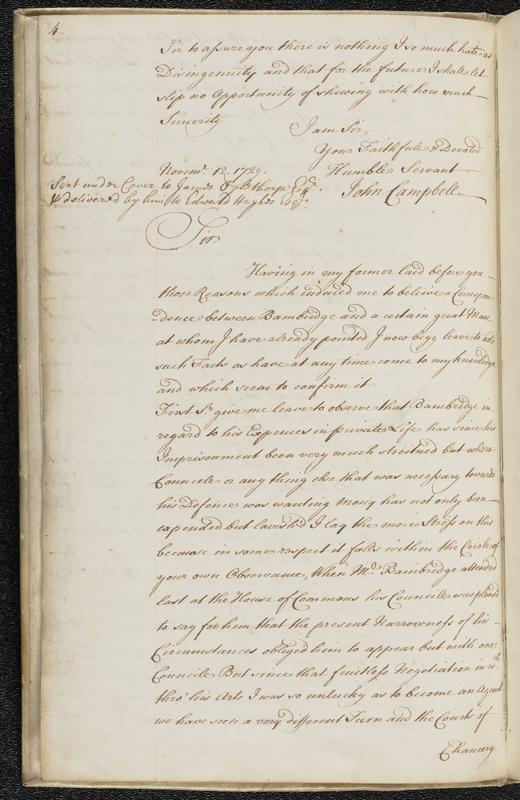 4.
Sr. to assure you there is nothing I so much hate as
Disingenuity and that for the future I shall let
slip no Opportunity of shewing with how much
Sincerity
I am Sir,
Your Faithfull & Devoted
Novemr. 12. 1729. Humble Servant
Sent under Cover to James Oglethorpe Esqr. John Campbell
& delivered by him to Edward Hughes Esqr.
Sir
Having in my former laid before you
those Reasons which induced me to beleive a Correspon-
dence between Bambridge and a certain great Man
at whom I have already pointed I now begg leave to add
such Facts as have at any time come to my knowledge
and which seem to confirm it
First Sr. give me leave to observe that Bambridge in
regard to his Expences in private Life has since his
Imprisonment been very much streitned but where
Councill or any thing else that was necessary towards
his Defence was wanting Mony has not only been
expended but lavish'd I lay the more Stress on this
because in some respect it falls within the Circle of
your own Observance, When Mr. Bambridge attended
last at the House of Commons his Councill was pleased
to say for him that the present Narrowness of his
Circumstances obliged him to appear but with one
Councill But since that fruitless Negotiation in wch.
thro' his Arts I was so unlucky as to become an Agent
we have seen a very different Turn and the Courts of
Chancery.